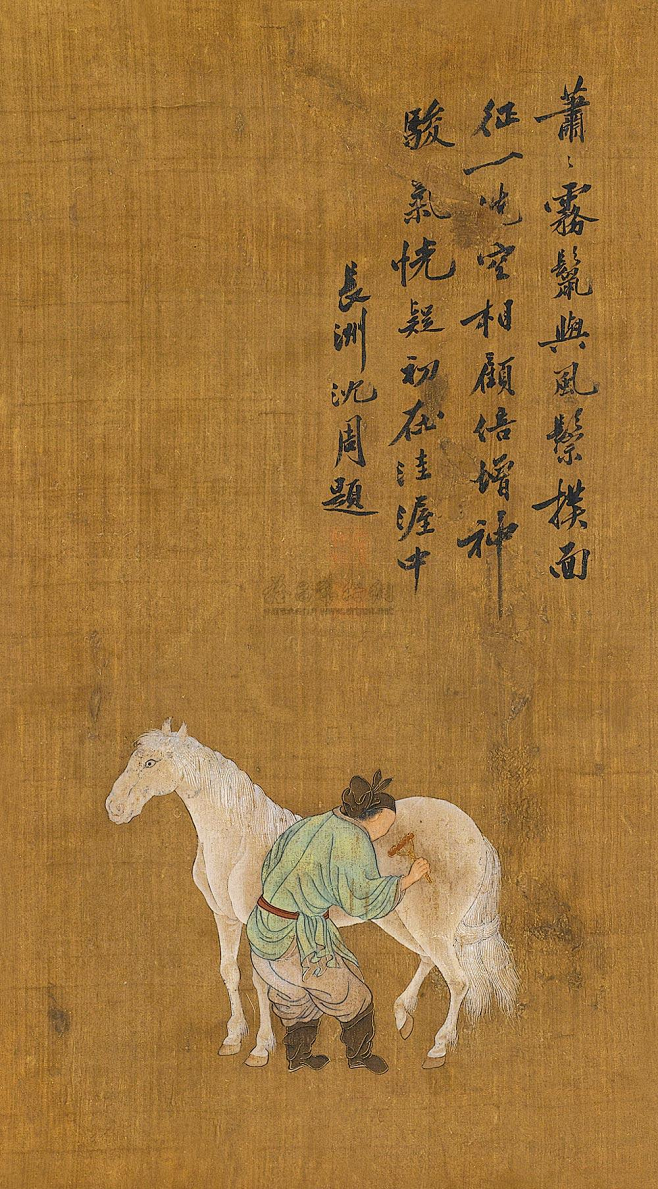 蕭〻霧鬣與風鬃撲面
征一洗空相顧倍增神
駿氣恍疑初在洼渥中
長洲沈周題